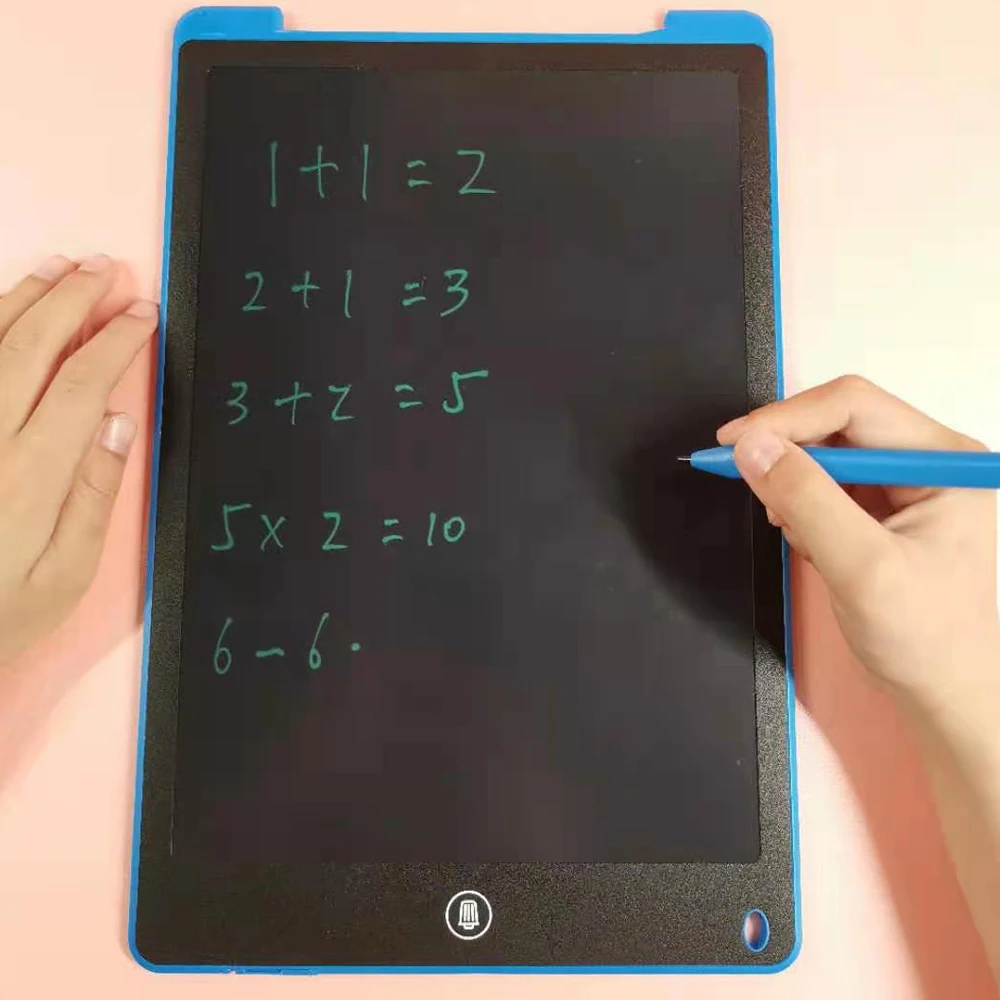 1+1=2
2+1=3
3+2=5
5×2=10
6-6.